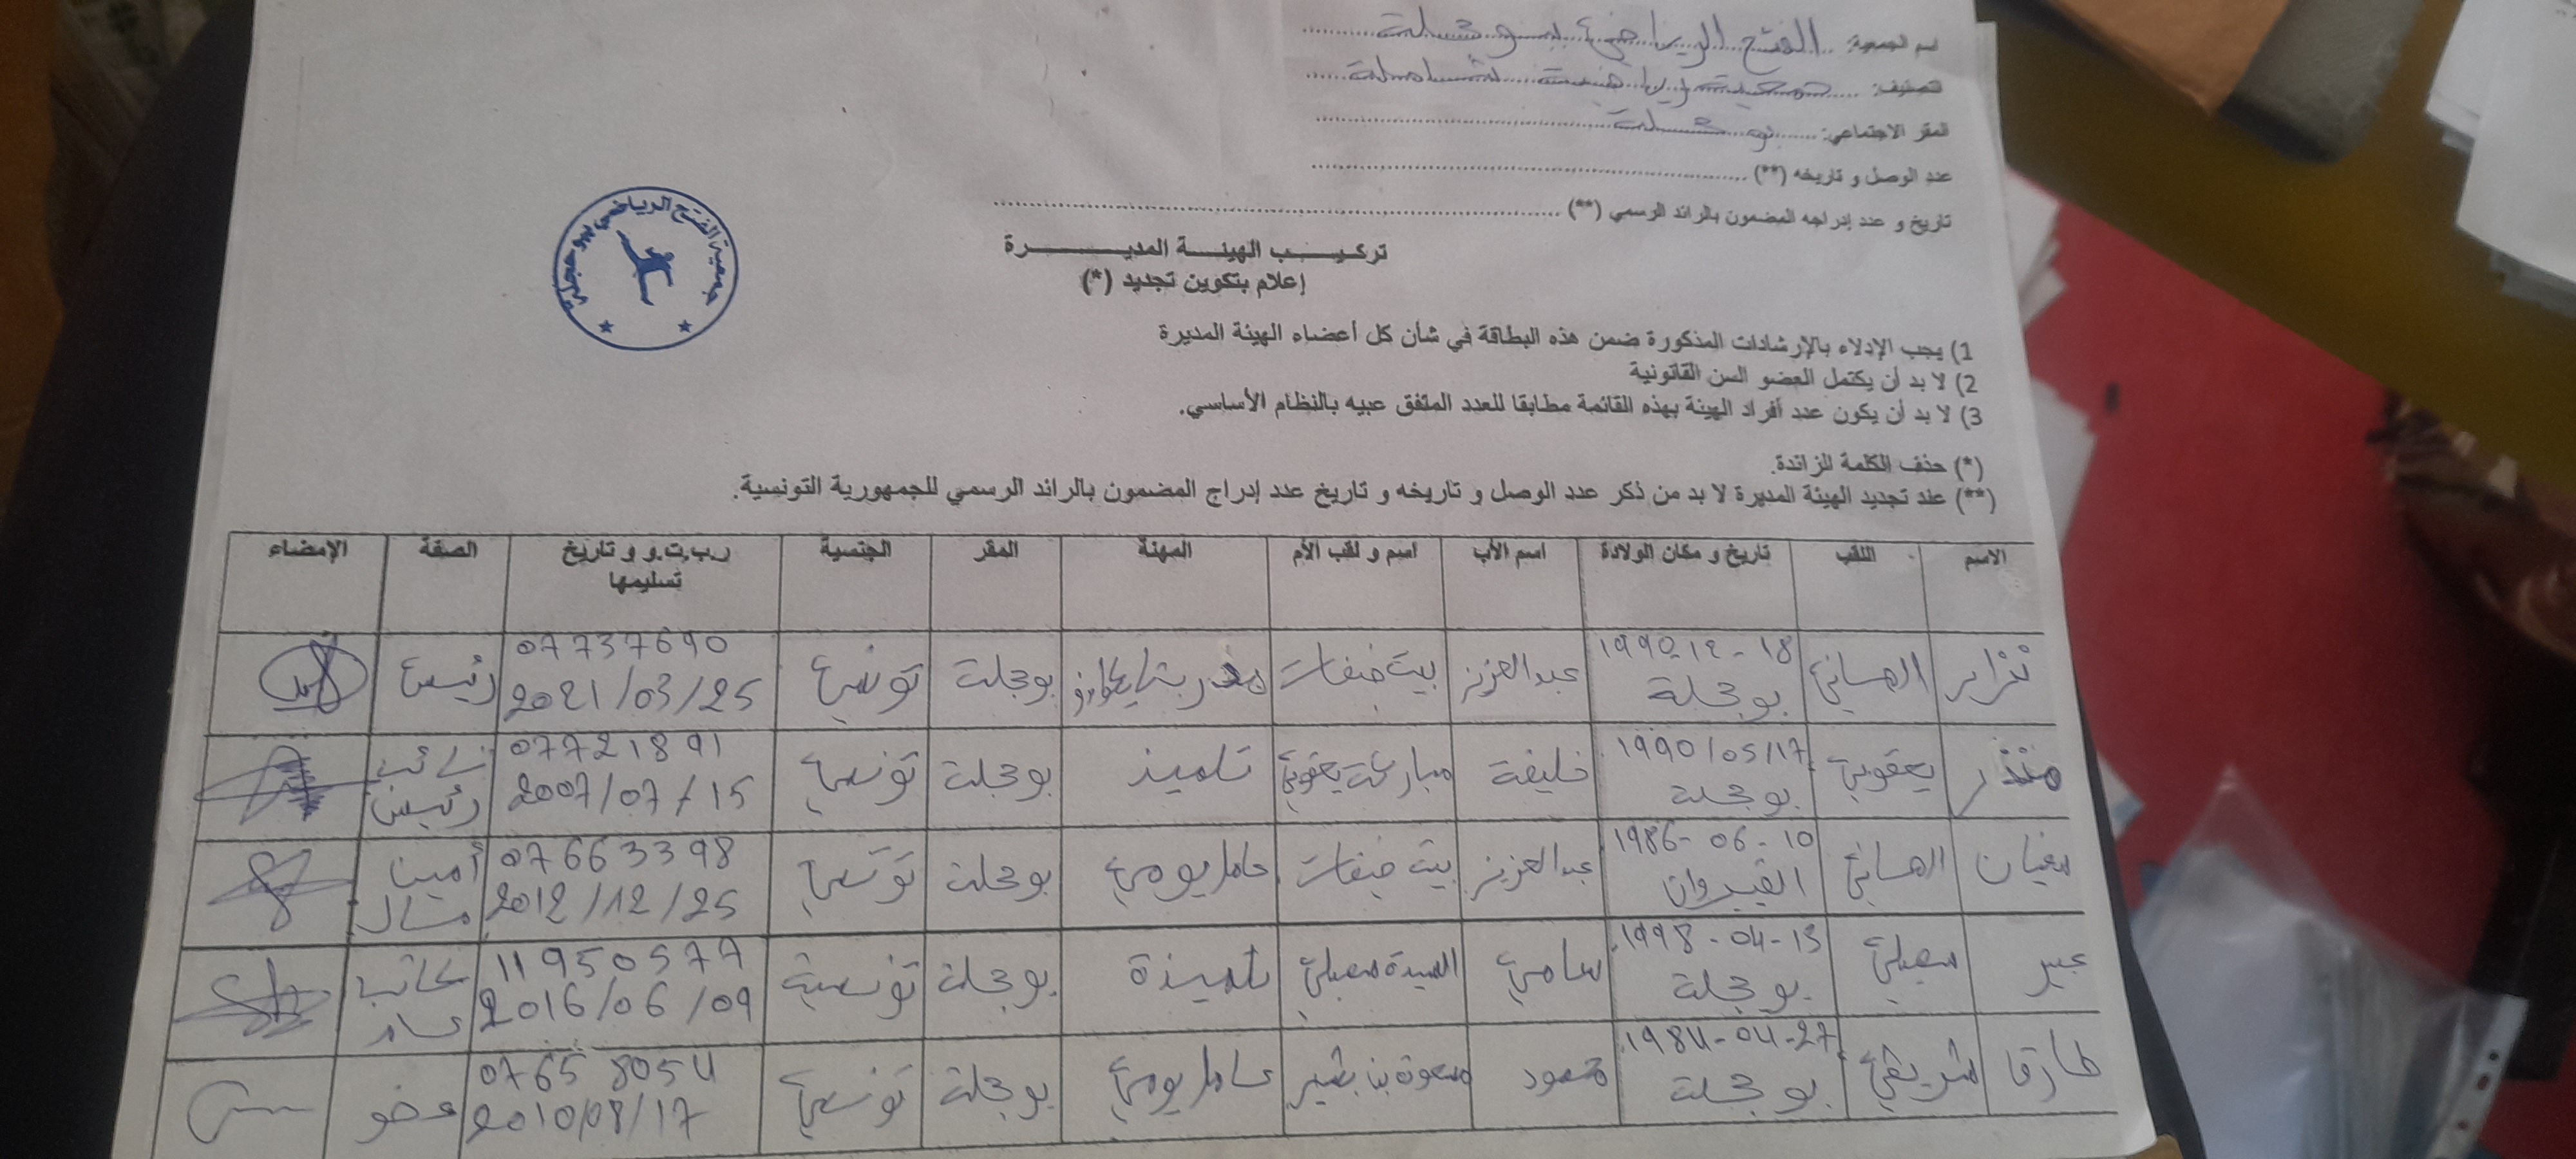 اسم الجمعية: الفتح الرياضي ببوحجلة
التصنيف: جمعية رياضية شاملة
المقر الاجتماعي: بوحجلة
عدد الوصل و تاريخه (**)
تاريخ و عدد إدراجه المضمون بالرائد الرسمي (**)
جمعية الفتح الرياضي ببوحجلة
تركيب الهيئة المديرة
إعلام بتكوين تجديد (*)
1) يجب الإدلاء بالإرشادات المذكورة ضمن هذه البطاقة في شأن كل أعضاء الهيئة المديرة
2) لا بد أن يكتمل العضو السن القانونية
3) لا بد أن يكون عدد أفراد الهيئة بهذه القائمة مطابقا للعدد المتفق عبيه بالنظام الأساسي.
(*) حذف الكلمة الزائدة.
(**) عند تجديد الهيئة المديرة لا بد من ذكر عدد الوصل و تاريخه و تاريخ عدد إدراج المضمون بالرائد الرسمي للجمهورية التونسية.
الاسم اللقب تاريخ و مكان الولادة اسم الأب اسم و لقب الأم المهنة المقر الجنسية ر.ب.ت.و و تاريخ تسليمها الصفة الإمضاء
نزار 18-12-1990 بوحجلة عبد العزيز بوحجلة تونسي 07737690 2021/03/25 رئيس
منذر يعقوبي 1990/05/17 بوحجلة خليفة مباركة يعقوبي تلميذ بوحجلة تونسي 07721891 2007/07/15 نائب رئيس
سفيان 10-06-1986 القيروان عبد العزيز عامل يومي بوحجلة تونسي 07663398 2012/12/25 أمين مال
عبير 13-04-1998 بوحجلة سامي السيدة تلميذة بوحجلة تونسية 11950577 2016/06/09 كاتب عام
طارق شريفي 27-04-1984 بوحجلة محمود بشير عامل يومي بوحجلة تونسي 07658054 2010/08/17 عضو